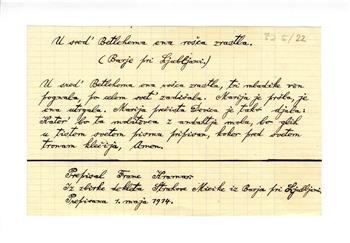 U sred' Betlehema ena rošca zrastla.
(Barje pri Ljubljani.)
U sred' Betlehema ena rošca zrastla, tri mladike ven
pognala, po celem svet' zadišala. Marija je pršla, je
eno utrgala. Marija prečista Gnorica je tako djala:
Kator' bo ta molitvico z andohtjo molu, bo glih
u tistem svetem pismu pripisan, kokor pred svetem
tronam klečijo, Amen.
Prepisal Franc Kramar
iz zbirke dekleta Strahove Micike iz Barja pri Ljubljani.
Prepisano 1. maja 1914.